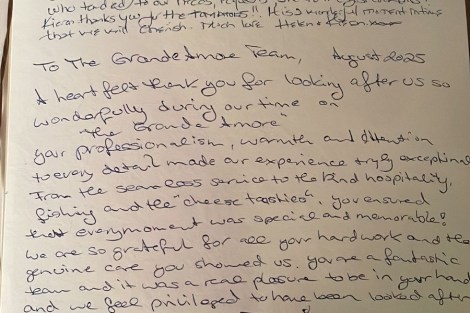 who tended to our
Kiera thanks you for the
that we will cherish. Much love Helen
To The Grande Amore Team, August 2025
A heart felt thank you for looking after us so
wonderfully during our time on
"The Grande Amore"
your professionalism, warmth and attention
to every detail made our experience truly exceptional
From the seamless service to the kind hospitality,
fishing and the "cheese toasties", you ensured
that every moment was special and memorable!
we are so grateful for all your hard work and the
genuine care you showed us. you are a fantastic
team and it was a real pleasure to be in your hand
and we feel privileged to have been looked after